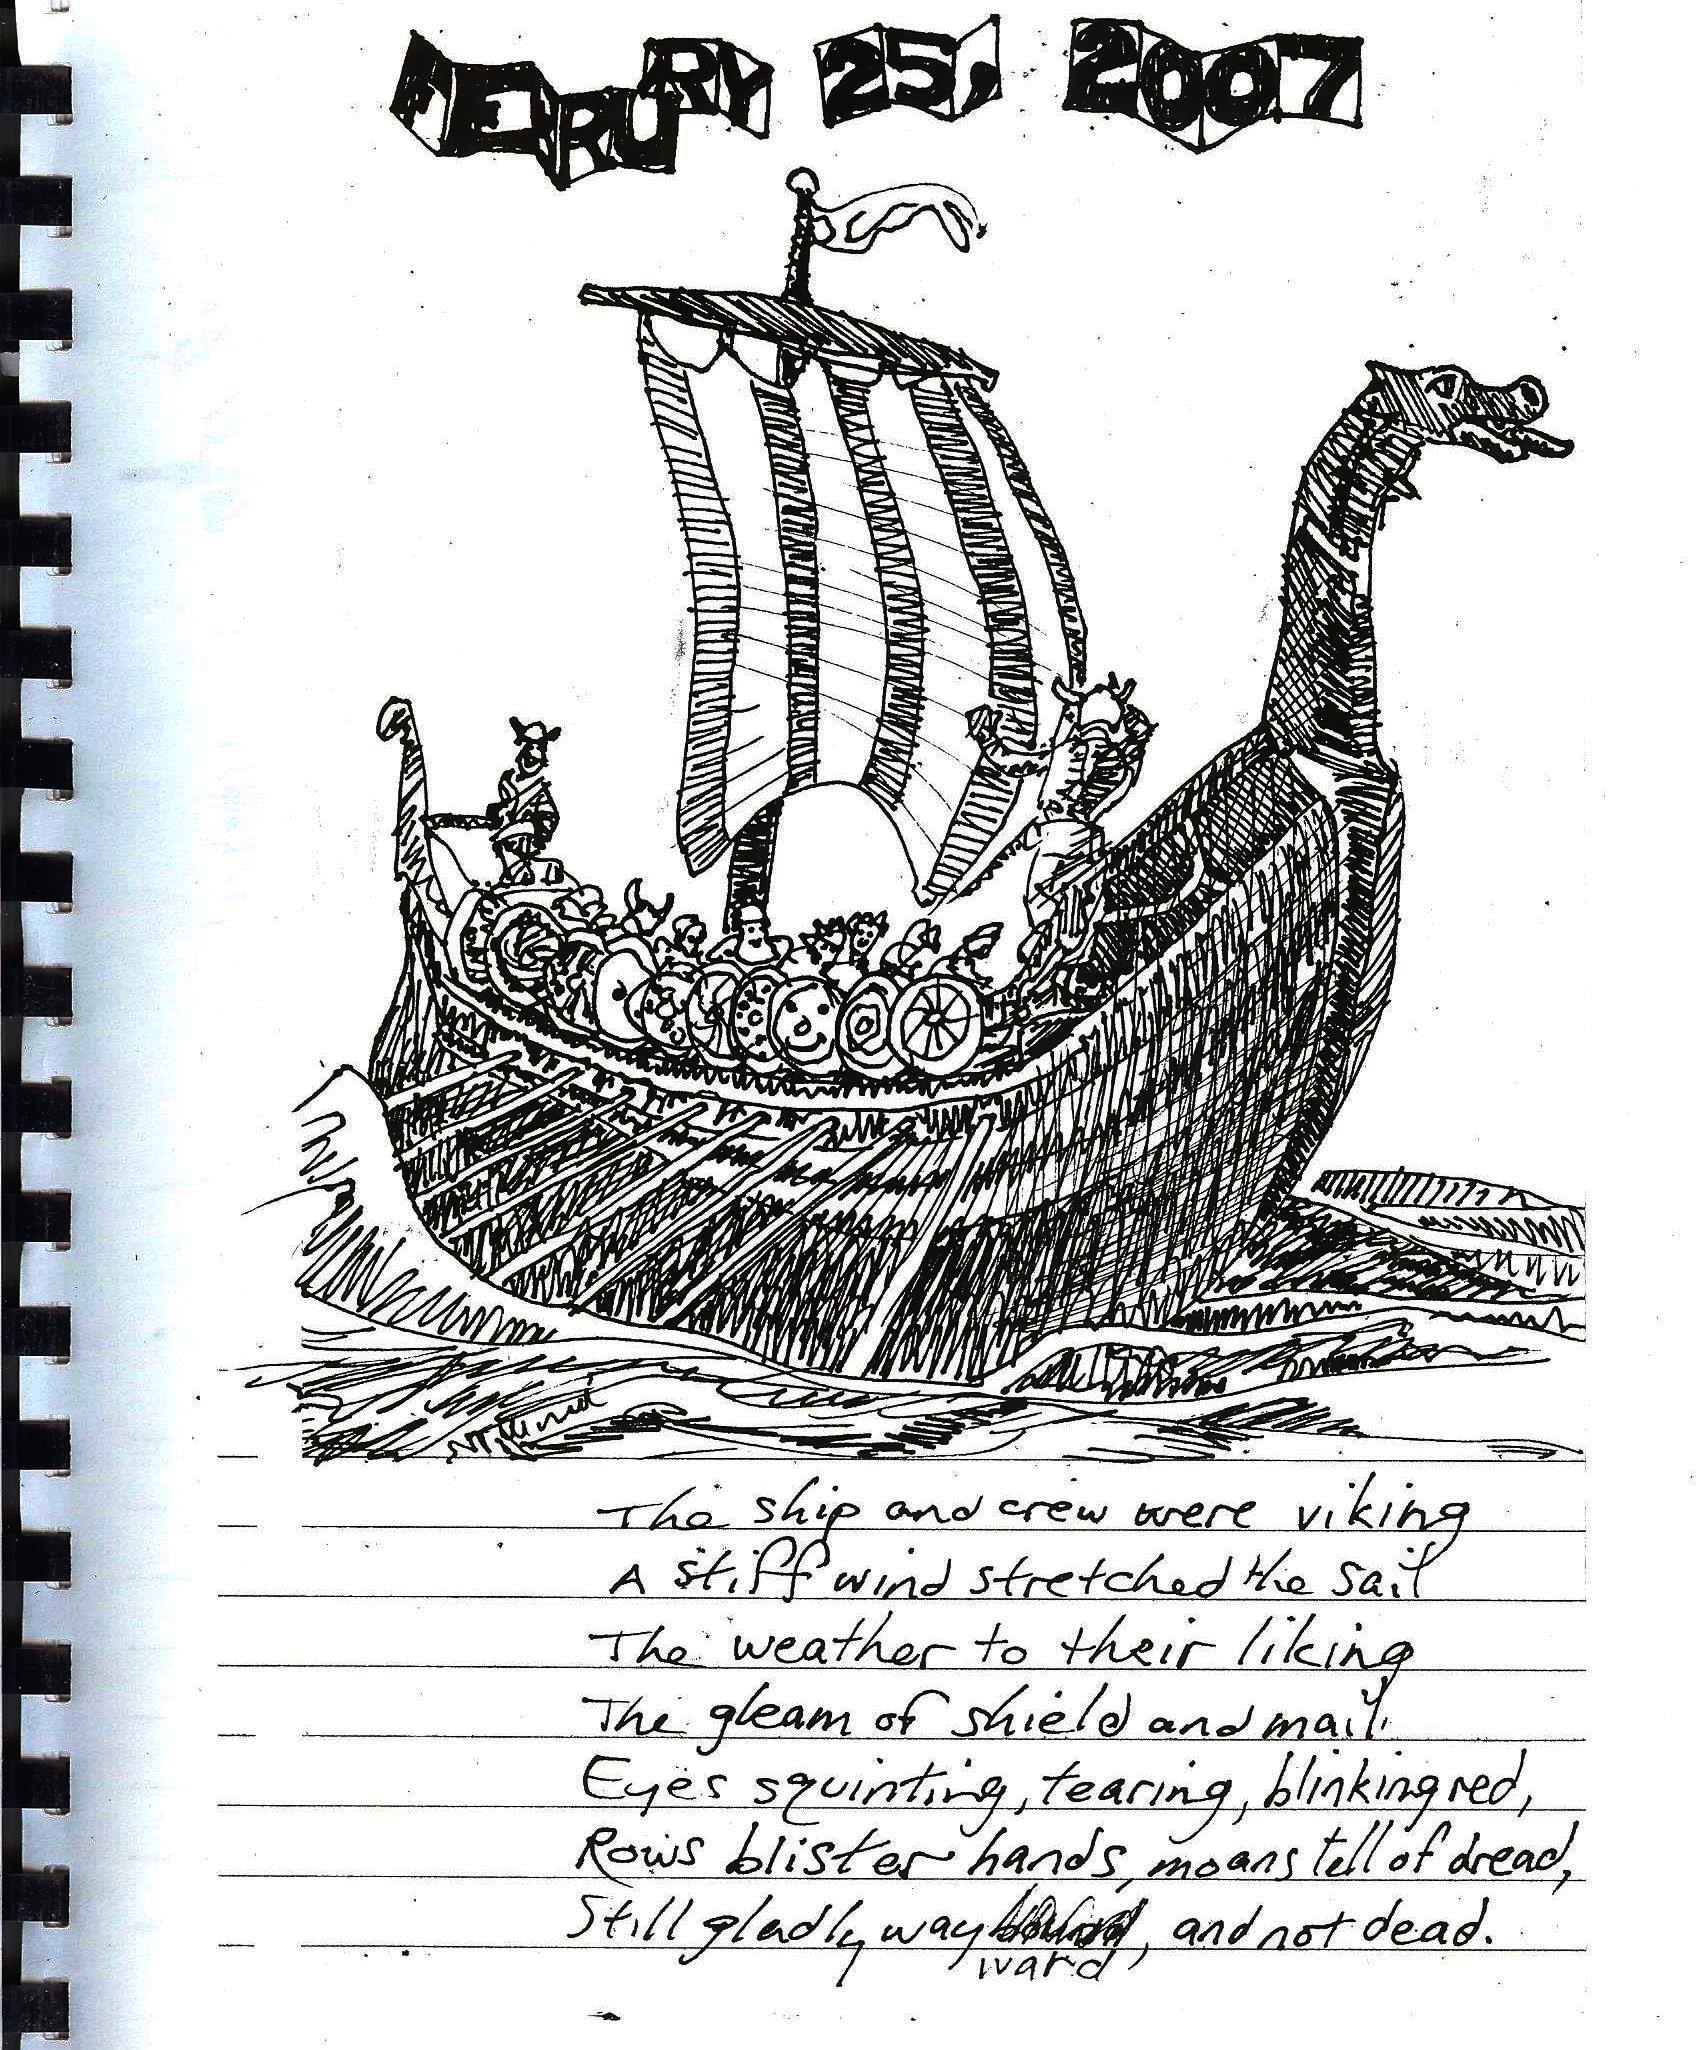 FERURY 25, 2007
The ship and crew were viking
A stiff wind stretched the sail
The weather to their liking
The gleam of shield and mail
Eyes squinting, tearing, blinking red,
Rows blister hands, moans tell of dread,
Still gladly way , and not dead.
ward